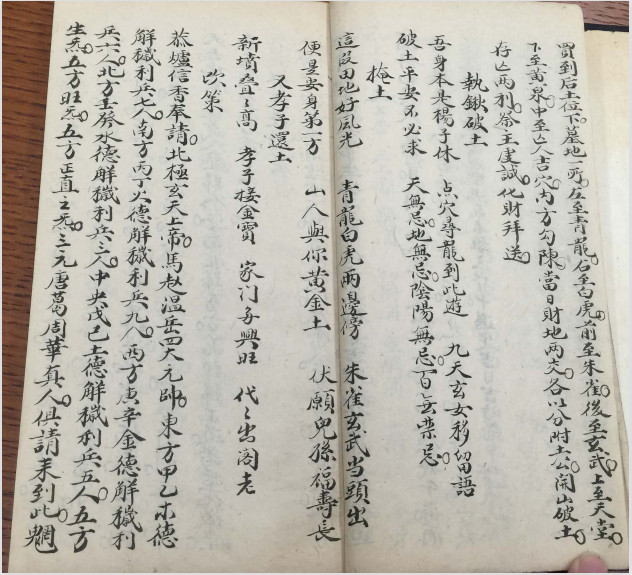 買到后土位下墓地一所左至青龍右至白虎前至朱雀後至玄武上至天堂
下至黃泉中至亡人吉穴內方勾陳當日財地兩交各以分附土公開山破土
存亡兩利祭主虔誠化財拜送
執鍬破土
吾身本是楊子休 点穴尋龍到此遊 九天玄女移留語
破土平安不必求 天無忌地無忌陰陽無忌百無禁忌
掩土
這段田地好風光 青龍白虎兩邊傍 朱雀玄武当頭出
便是安身第一方 山人與你黃金土 伏願兒孫福壽長
又孝子還土
新墳疊々高 孝子接金寶 家门多興旺 代々出阁老
吹策
恭爐信香奉請北極玄天上帝馬赵温岳四大元帥東方甲乙木德
解穢利兵七人南方丙丁火德解穢利兵九人西方庚辛金德解穢利
兵六人北方壬癸水德解穢利兵三人中央戊己土德解穢利兵五人五方
生炁五方旺炁五方正直之炁三元唐葛周華真人俱請来到此魍